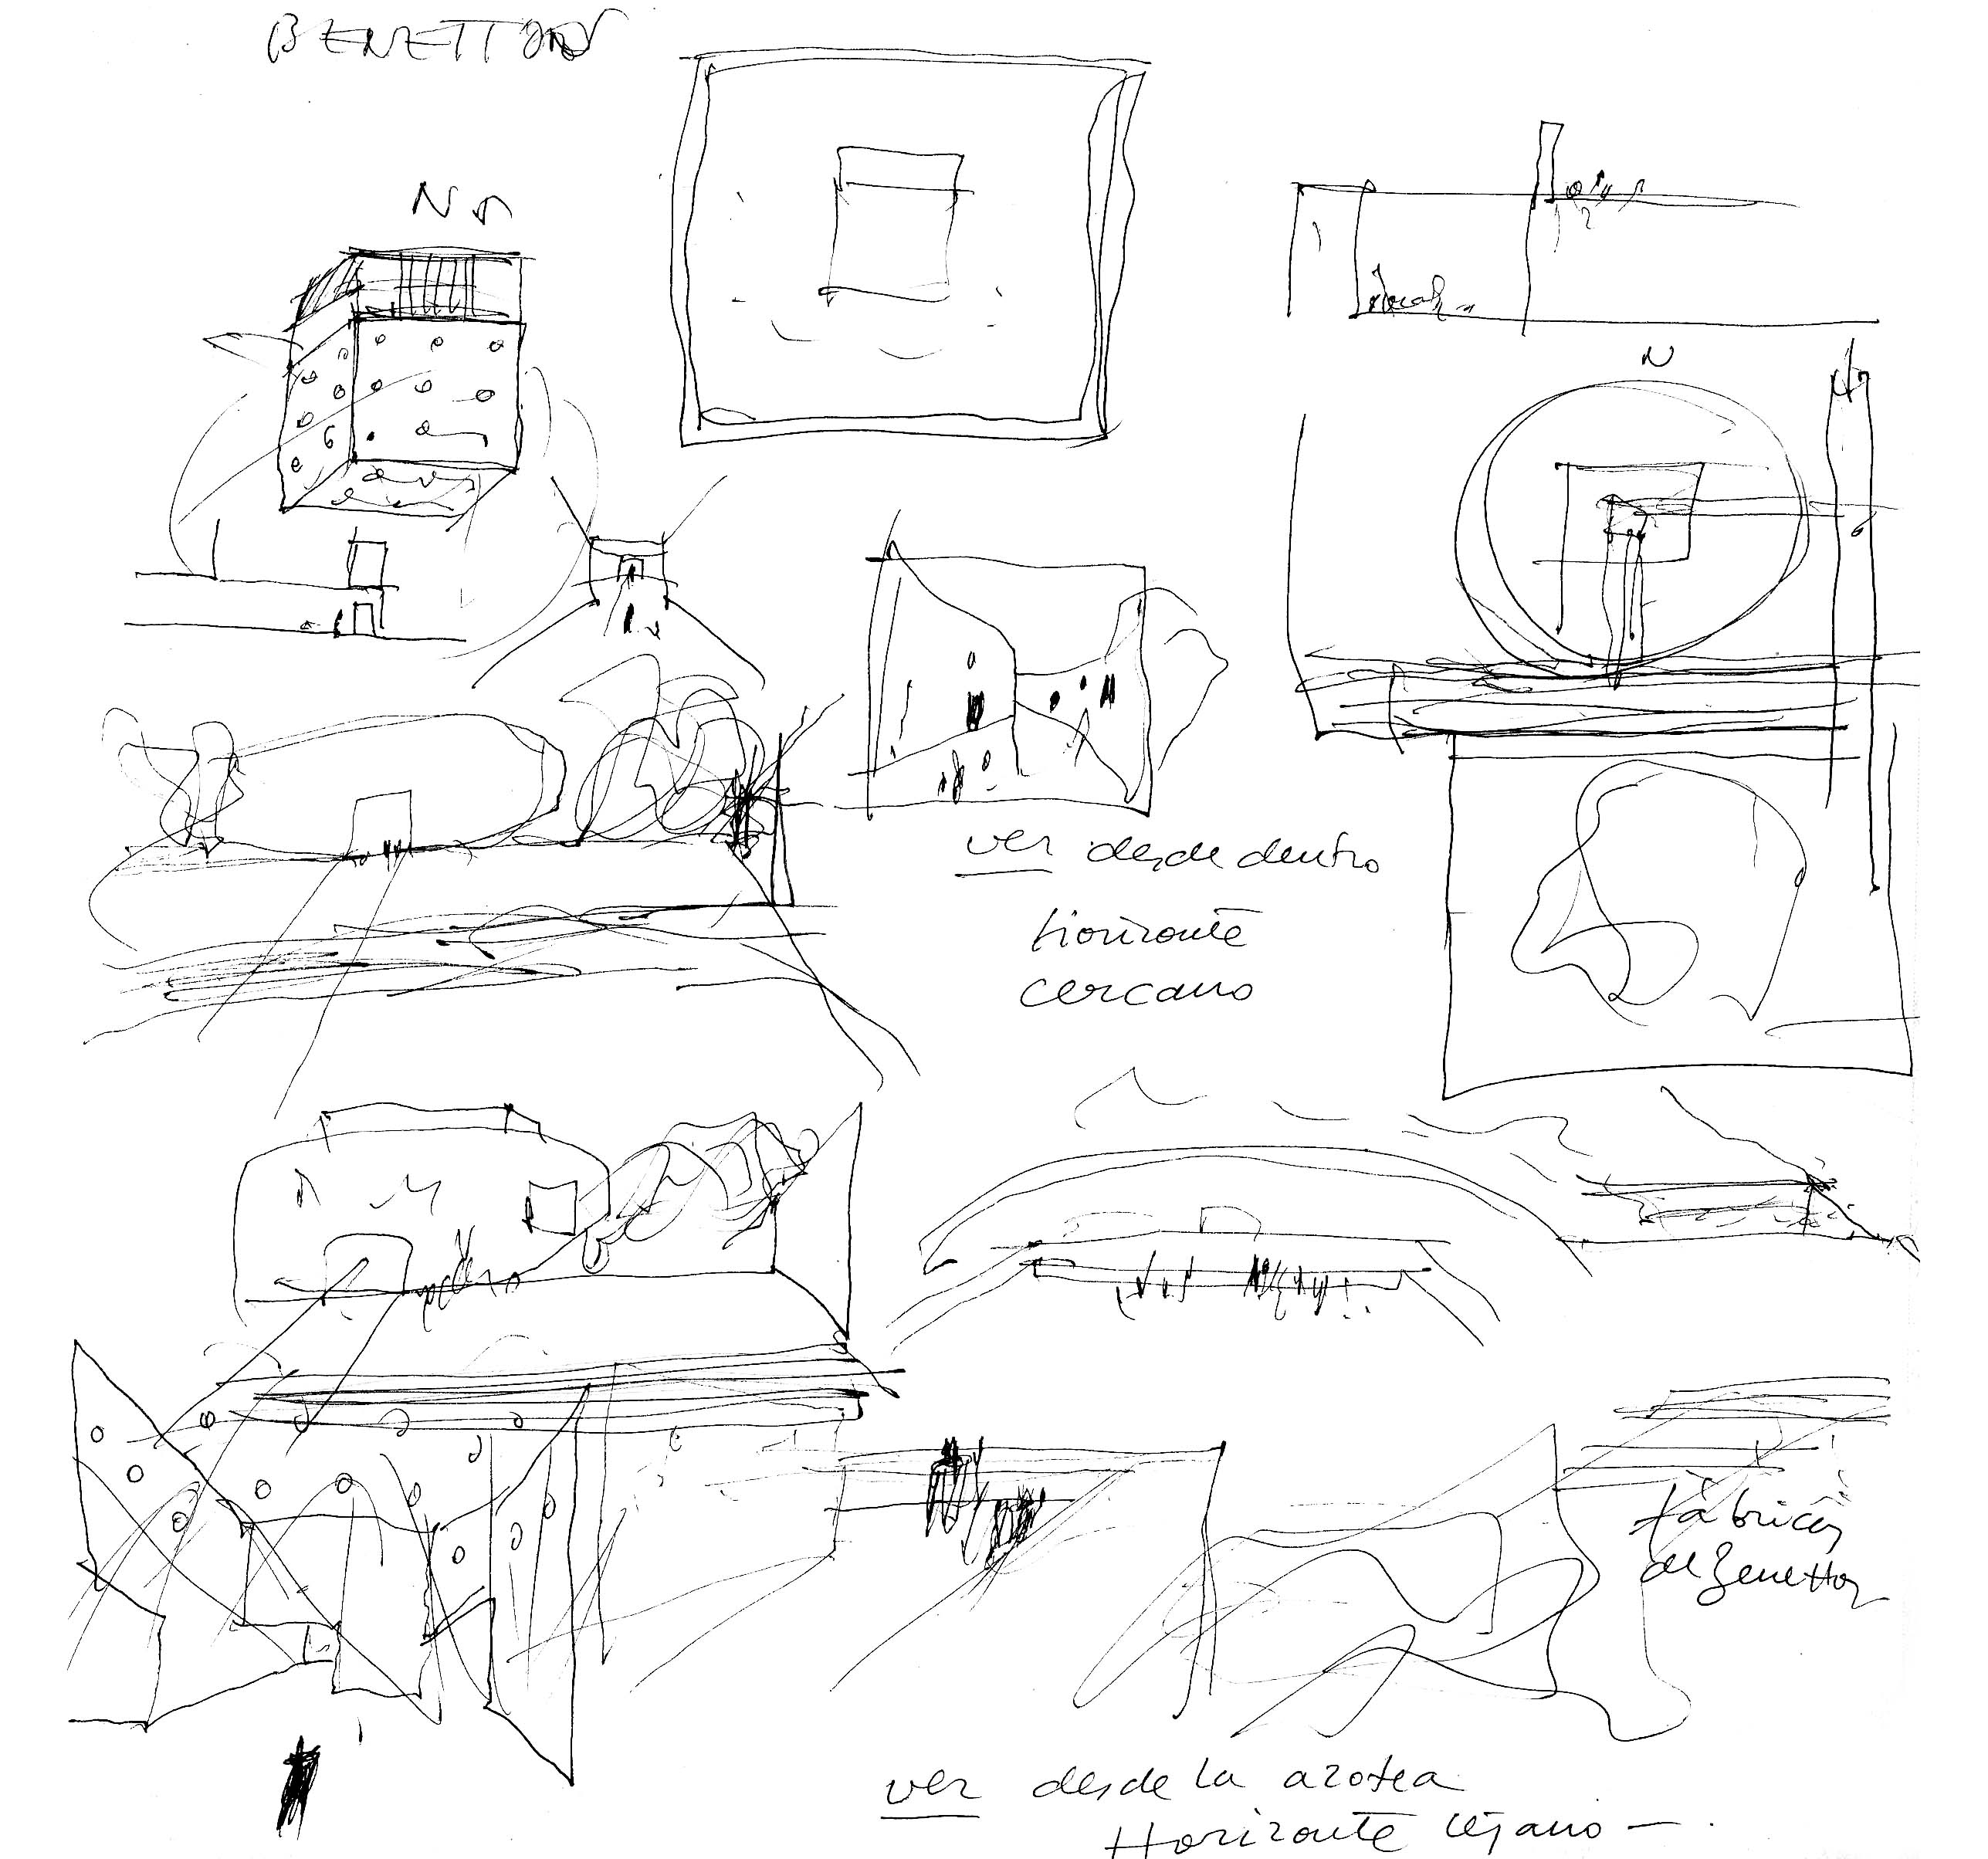 BENETTON
N
N
ver desde dentro
Horizonte
cercano
fábricas
de Benetton
ver desde la azotea
Horizonte lejano —.